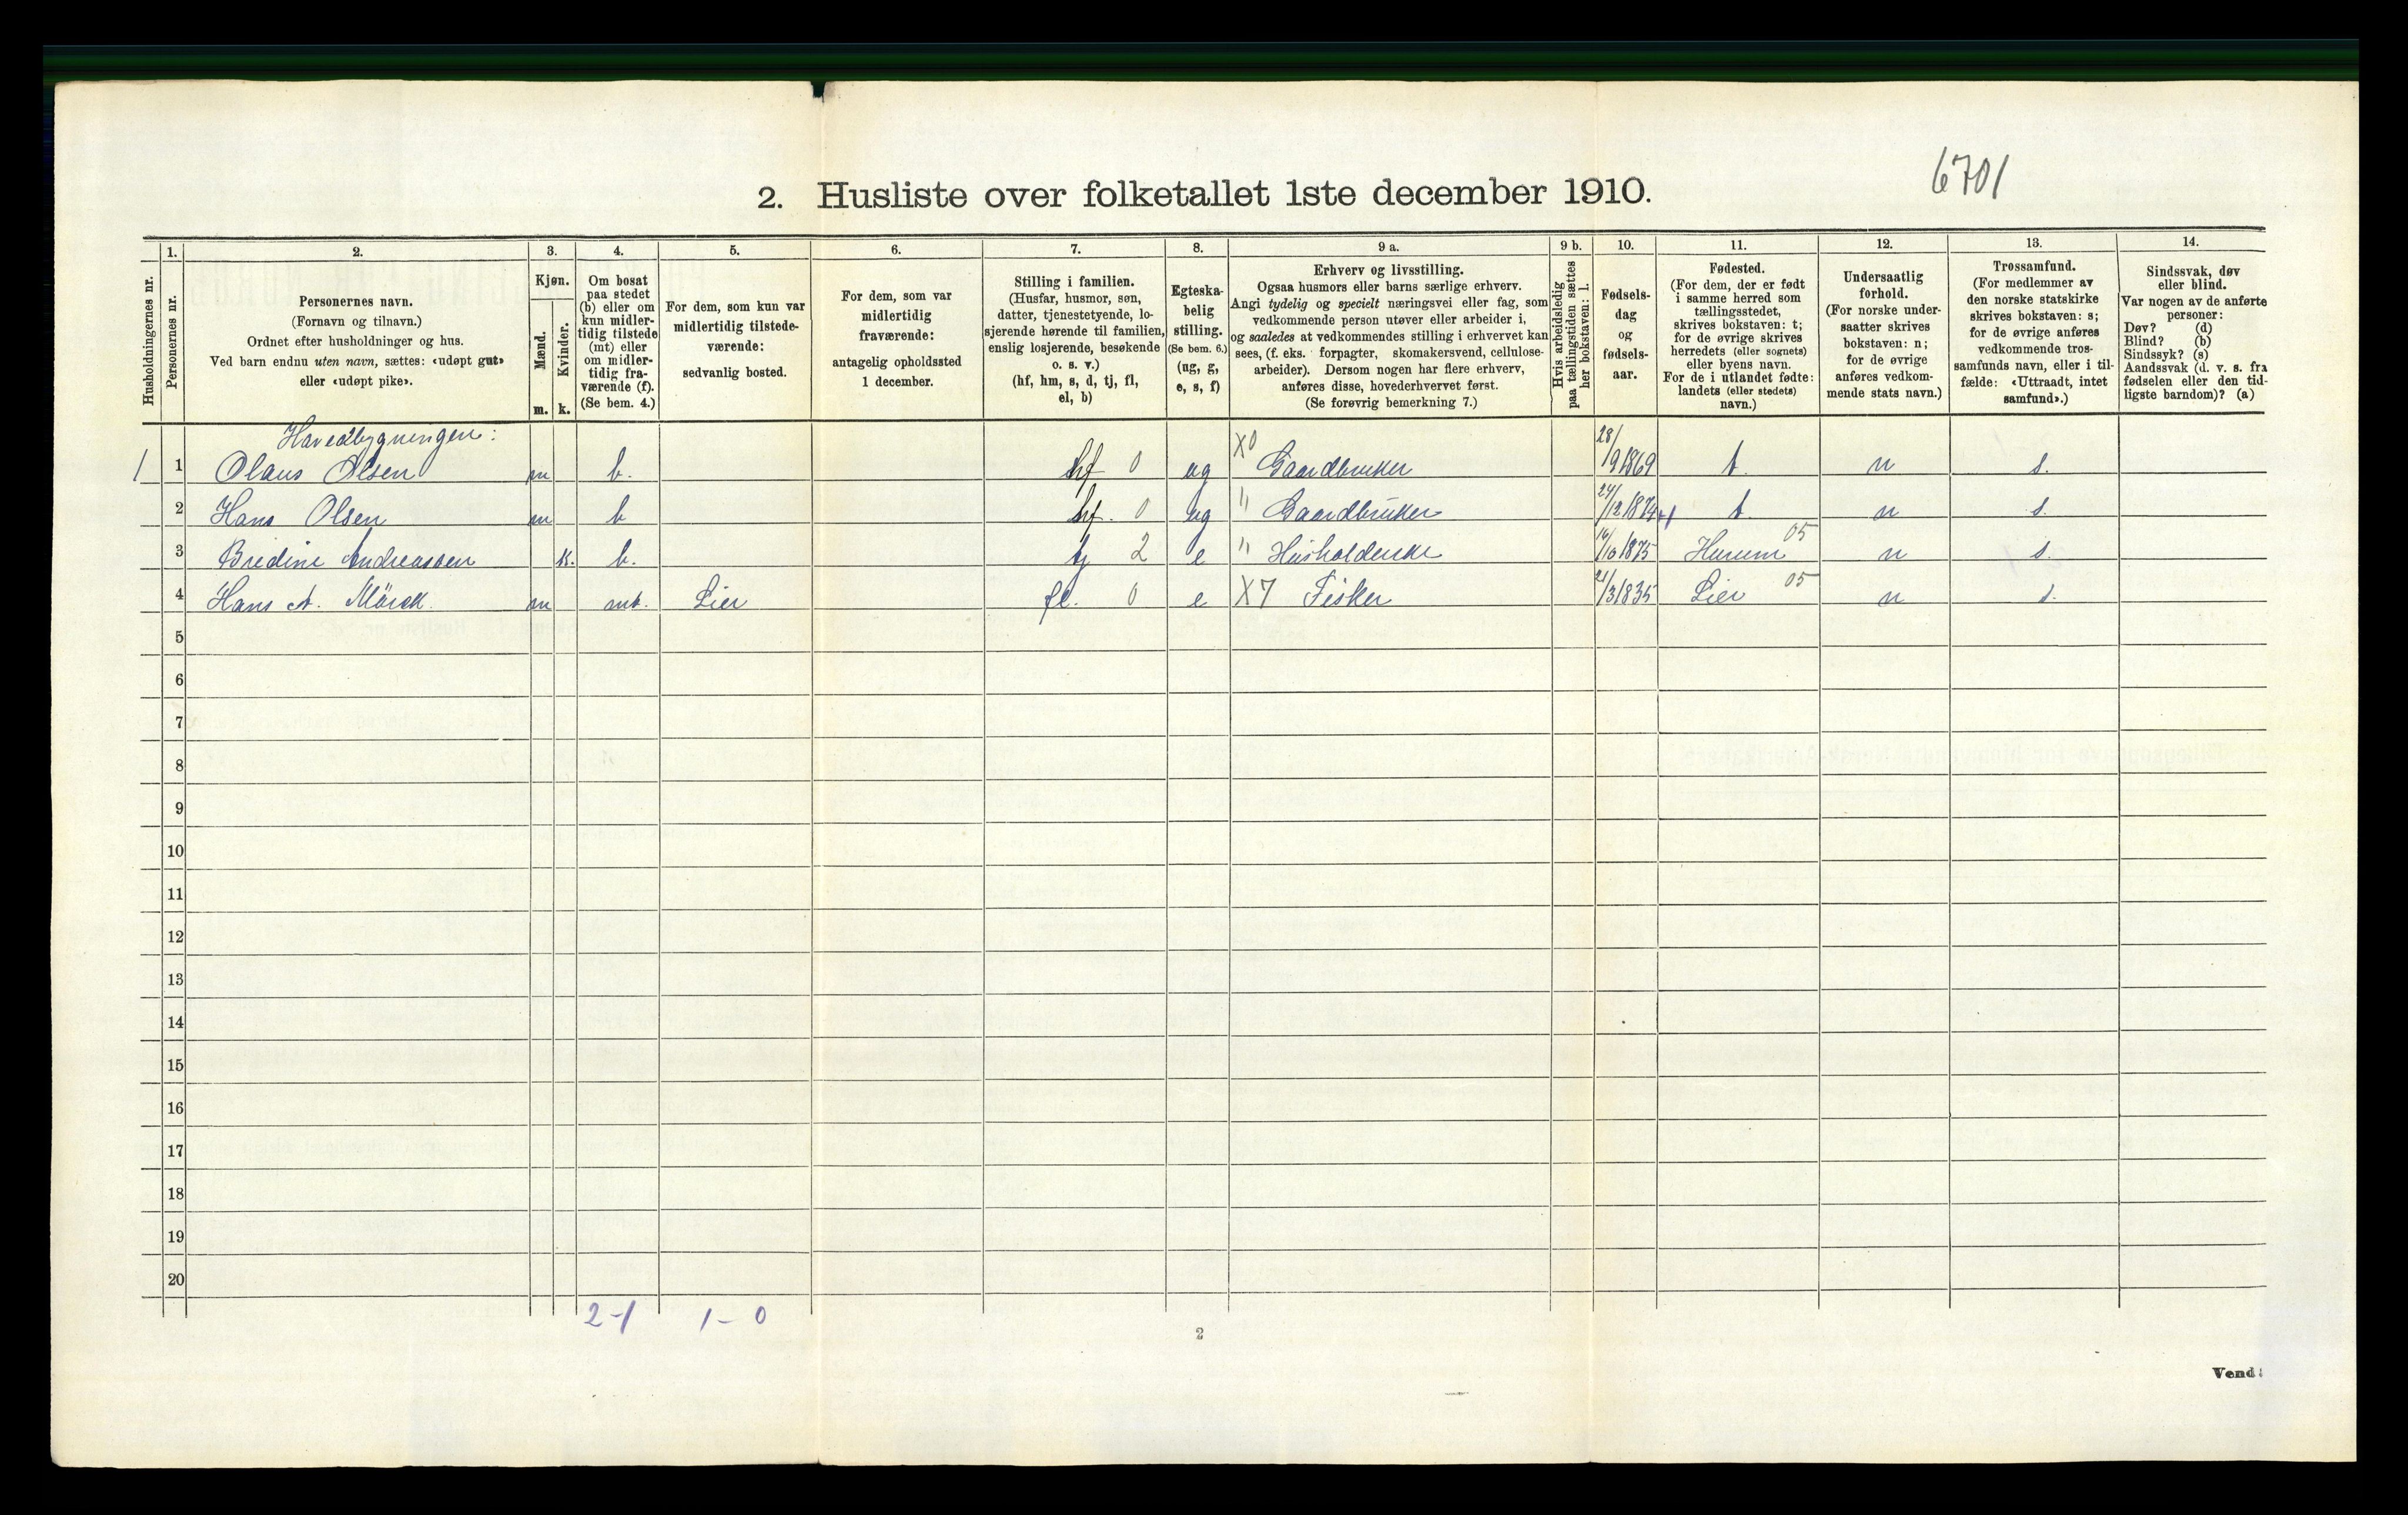 6701
2. Husliste over folketallet 1ste december 1910.
Husholdningernes nr.
1.
Personernes nr.
2.
Personernes navn.
(Fornavn og tilnavn.)
Ordnet efter husholdninger og hus.
Ved barn endnu uten navn, sættes: «udøpt gut»
eller «udøpt pike».
3.
Kjøn.
Mænd.
Kvinder.
m. k.
4.
Om bosat
paa stedet
(b) eller om
kun midler-
tidig tilstede
(mt) eller
om midler-
tidig fra-
værende (f).
(Se bem. 4.)
5.
For dem, som kun var
midlertidig tilstede-
værende:
sedvanlig bosted.
6.
For dem, som var
midlertidig
fraværende:
antagelig opholdssted
1 december.
7.
Stilling i familien.
(Husfar, husmor, søn,
datter, tjenestetyende, lo-
sjerende hørende til familien,
enslig losjerende, besøkende
o. s. v.)
(hf, hm, s, d, tj, fl,
el, b)
8.
Egteska-
belig
stilling.
(Se bem. 6.)
(ug, g,
e, s, f)
9 a.
Erhverv og livsstilling.
Ogsaa husmors eller barns særlige erhverv.
Angi tydelig og specielt næringsvei eller fag, som
vedkommende person utøver eller arbeider i,
og saaledes at vedkommendes stilling i erhvervet kan
sees, (f. eks. forpagter, skomakersvend, cellulose-
arbeider). Dersom nogen har flere erhverv,
anføres disse, hovederhvervet først.
(Se forøvrig bemerkning 7.)
9 b.
Hvis arbeidsledig
paa tællingstiden sættes
her bokstaven: l.
10.
Fødsels-
dag
og
fødsels-
aar.
11.
Fødested.
(For dem, der er født
i samme herred som
tællingsstedet,
skrives bokstaven: t;
for de øvrige skrives
herredets (eller sognets)
eller byens navn.
For de i utlandet fødte:
landets (eller stedets)
navn.)
12.
Undersaatlig
forhold.
(For norske under-
saatter skrives
bokstaven: n;
for de øvrige
anføres vedkom-
mende stats navn.)
13.
Trossamfund.
(For medlemmer av
den norske statskirke
skrives bokstaven: s;
for de øvrige anføres
vedkommende tros-
samfunds navn, eller i til-
fælde: «Uttraadt, intet
samfund».)
14.
Sindssvak, døv
eller blind.
Var nogen av de anførte
personer:
Døv? (d)
Blind? (b)
Sindssyk? (s)
Aandssvak (d. v. s. fra
fødselen eller den tid-
ligste barndom)? (a)
Hovedbygningen:
1 1 Olaus Olsen m b. hf 0 ug X0 Gaardbruker 28/9 1869 t. n s.
2 Hans Olsen m b hf. 0 ug " Gaardbruker 24/12 1874 t. n s.
3 Bredine Andreassen k. b. tj 2 e " Husholderske 16/10 1875 Hurum 05 n s.
4 Hans A. Mörck. m mt. Lier fl. 0 e X7 Fisker 21/3 1835 Lier 05 n s.
5
6
7
8
9
10
11
12
13
14
15
16
17
18
19
20
2-1 1-0
2
Vend!